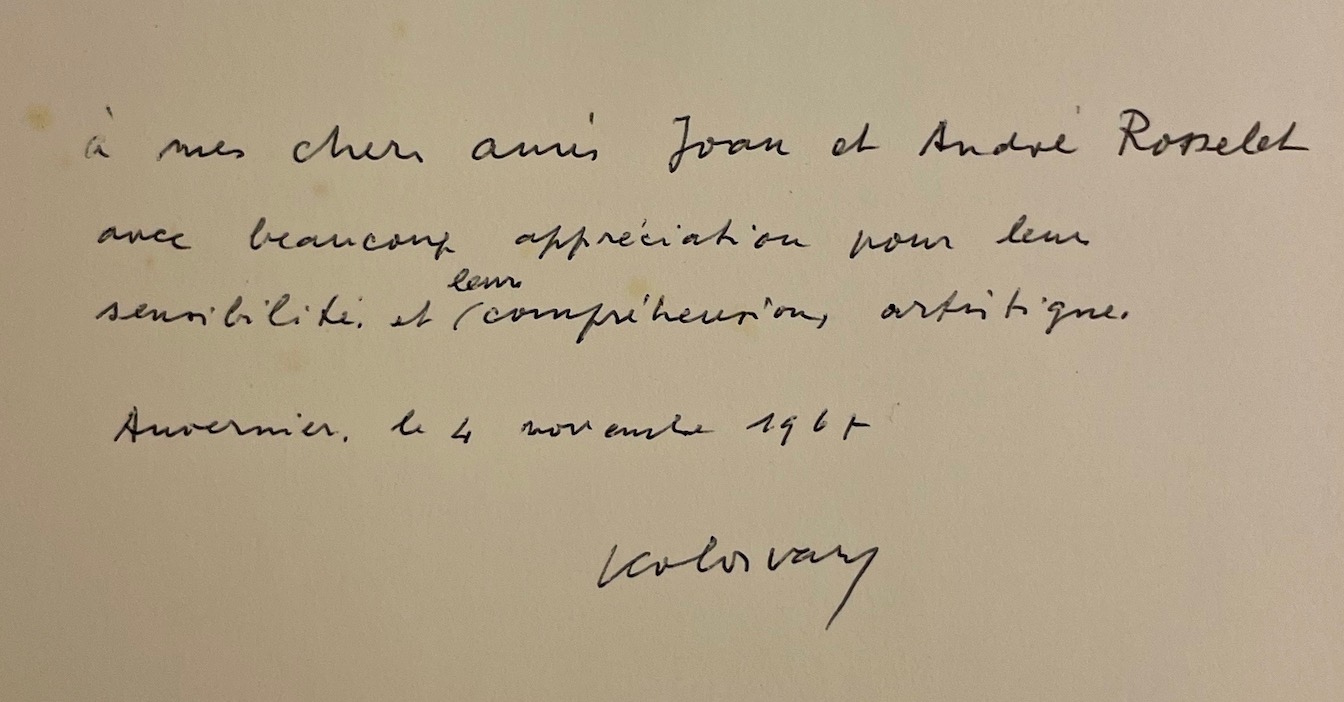 à mes chers amis Joan et André Rosselet
avec beaucoup appréciation pour leur
leur
sensibilité. et (compréhension, artistique.
Auvernier. le 4 novembre
Kolosvary